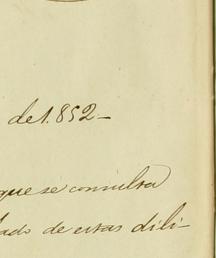 de 1.852-
que se consulta
lado de estas dili-